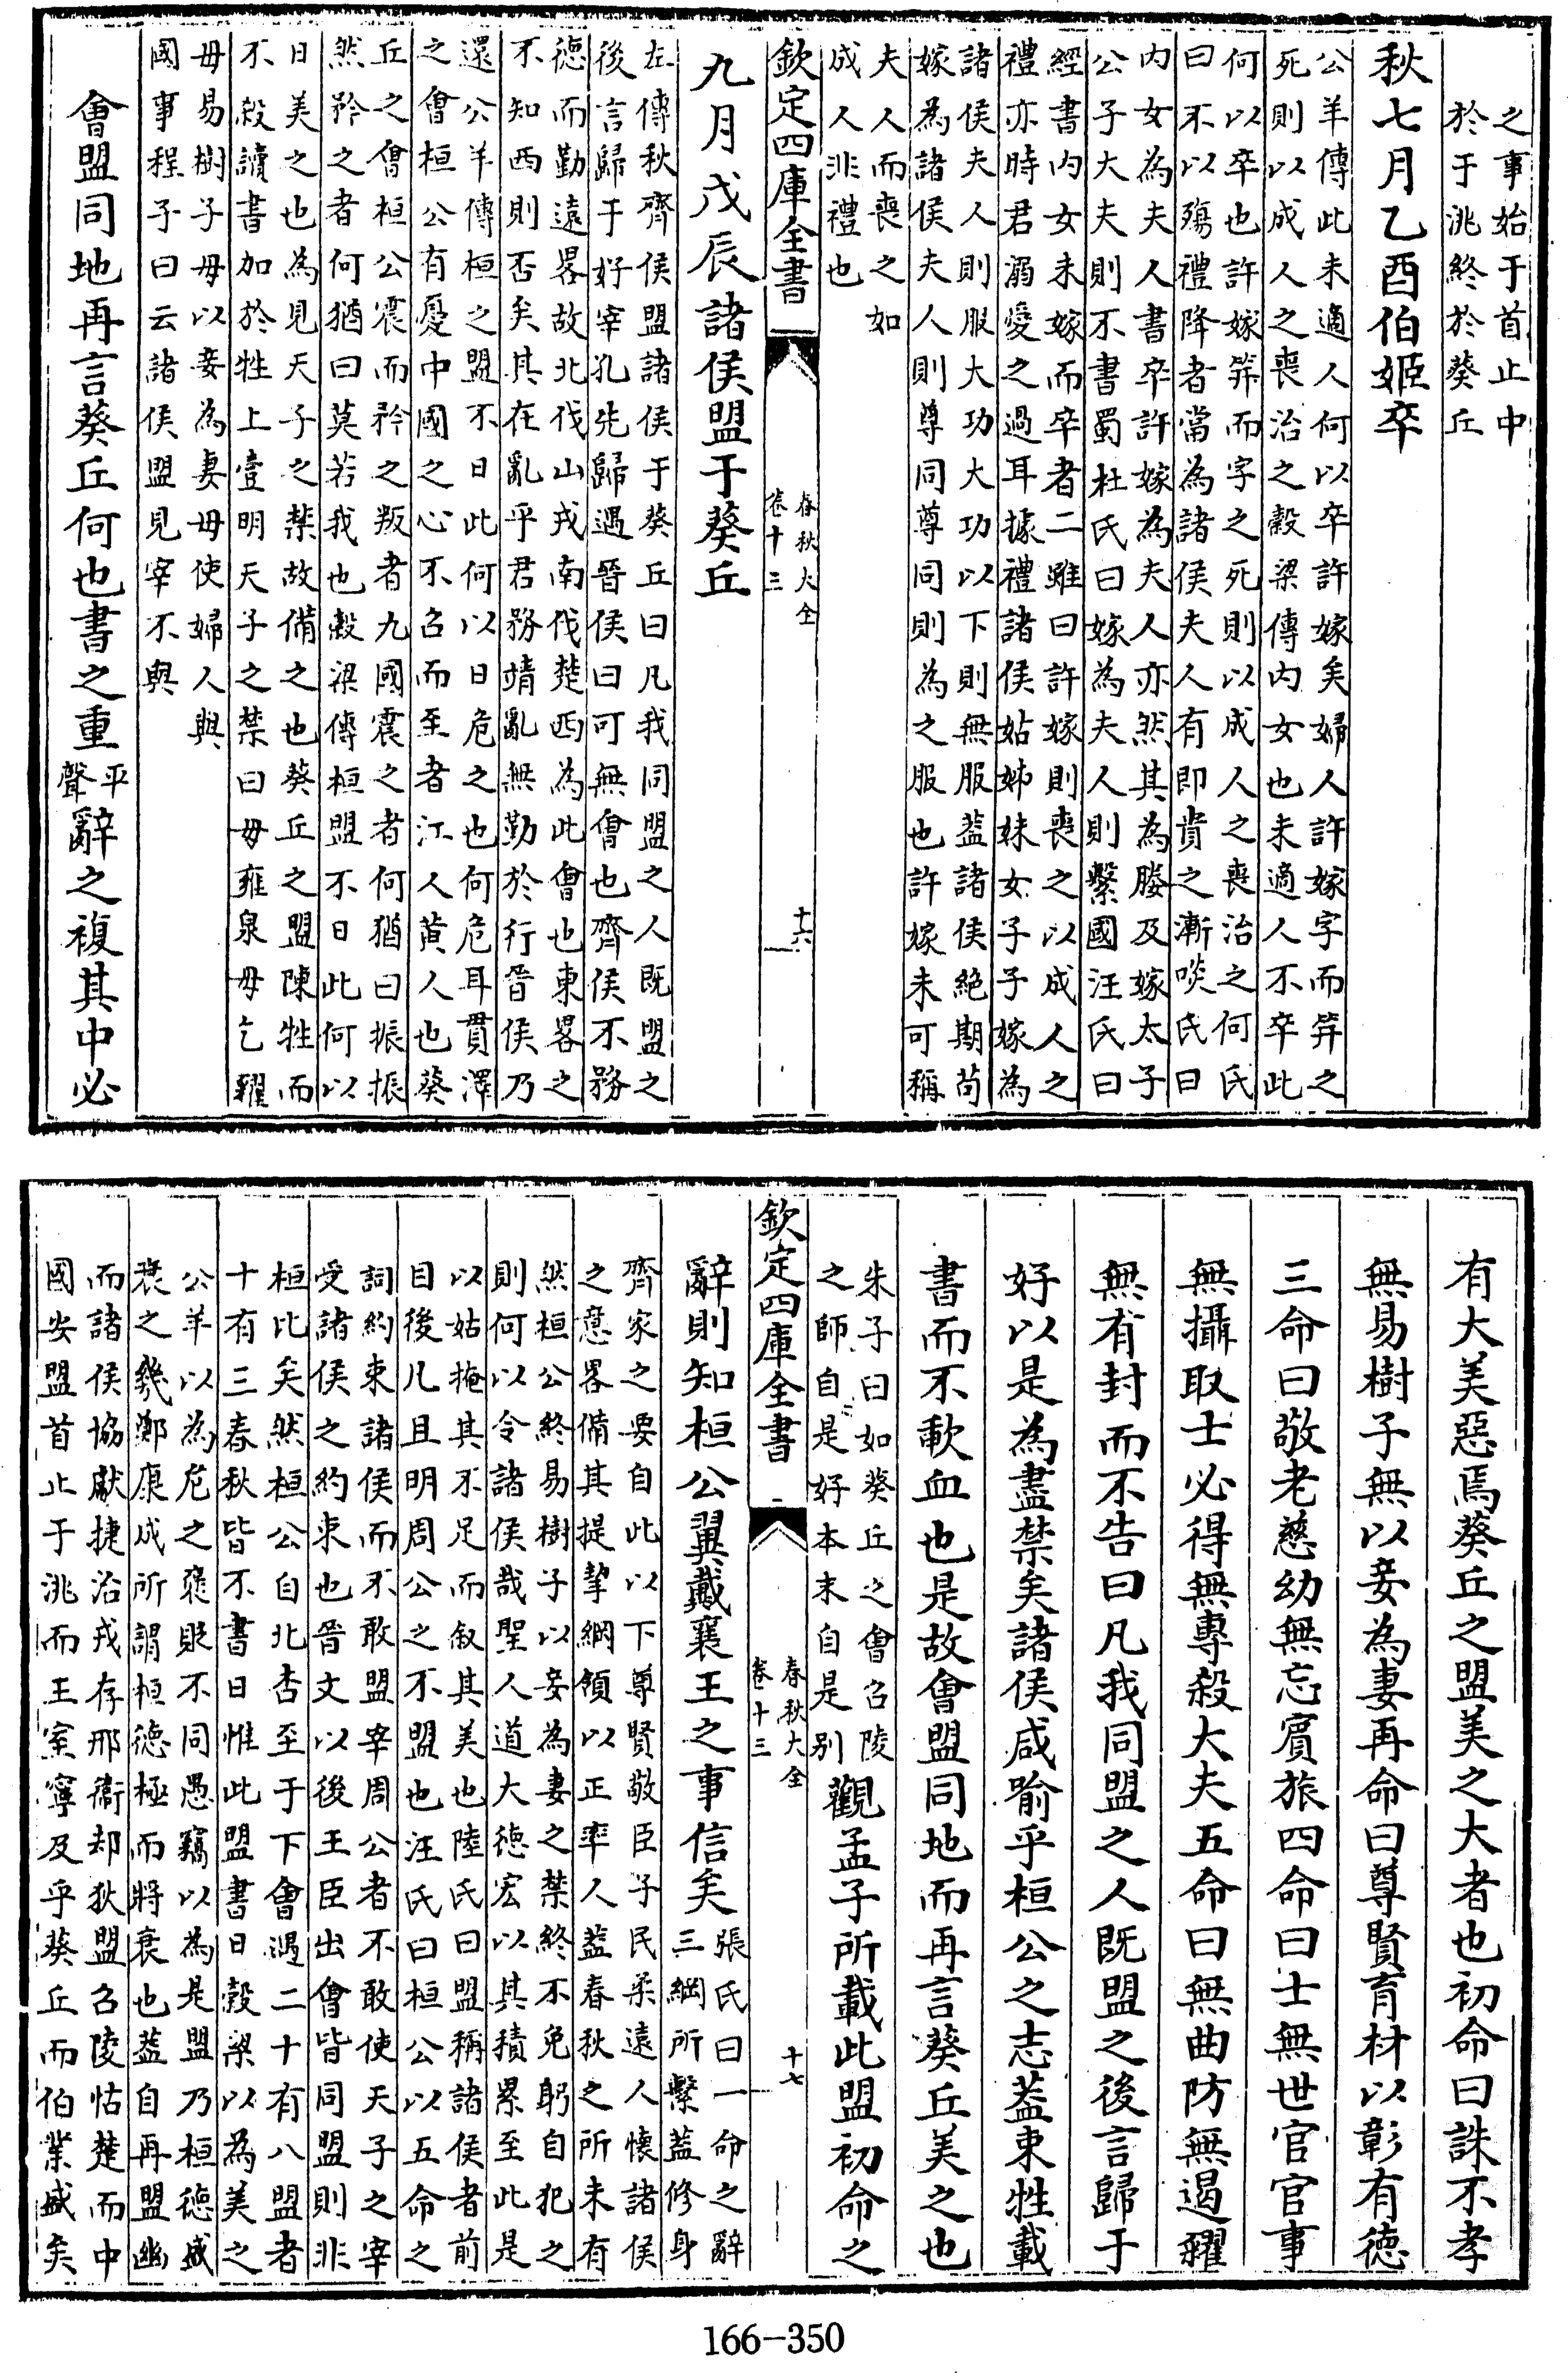 之事始于首止中
於于洮終於葵丘
秋七月乙酉伯姬卒
公羊傳此未適人何以卒許嫁矣婦人許嫁字而笄之
死則以成人之喪治之穀梁傳内女也未適人不卒此
何以卒也許嫁笄而字之死則以成人之喪治之何氏
曰不以殤禮降者當為諸侯夫人有即貴之漸啖氏曰
内女為夫人書卒許嫁為夫人亦然其為媵及嫁太子
公子大夫則不書蜀杜氏曰嫁為夫人則繫國汪氏曰
經書内女未嫁而卒者二雖曰許嫁則喪之以成人之
禮亦時君溺愛之過耳據禮諸侯姑姊妹女子子嫁為
諸侯夫人則服大功大功以下則無服蓋諸侯絶期茍
嫁為諸侯夫人則尊同尊同則為之服也許嫁未可稱
夫人而喪之如
成人非禮也
欽定四庫全書
春秋大全
卷十三
十六
九月戊辰諸侯盟于葵丘
左傳秋齊侯盟諸侯于葵丘曰凡我同盟之人既盟之
後言歸于好宰孔先歸遇晉侯曰可無會也齊侯不務
德而勤遠畧故北伐山戎南伐楚西為此會也東畧之
不知西則否矣其在亂乎君務靖亂無勤於行晉侯乃
還公羊傳桓之盟不日此何以日危之也何危耳貫澤
之會桓公有憂中國之心不召而至者江人黄人也葵
丘之會桓公震而矜之叛者九國震之者何猶曰振振
然矜之者何猶曰莫若我也穀梁傳桓盟不日此何以
日美之也為見天子之禁故備之也葵丘之盟陳牲而
不殺讀書加於牲上壹明天子之禁曰毋雍泉毋乞糴
毋易樹子毋以妾為妻毋使婦人與
國事程子曰云諸侯盟見宰不與
會盟同地再言葵丘何也書之重平聲辭之複其中必
有大美惡焉葵丘之盟美之大者也初命曰誅不孝
無易樹子無以妾為妻再命曰尊賢育材以彰有德
三命曰敬老慈幼無忘賓旅四命曰士無世官官事
無攝取士必得無專殺大夫五命曰無曲防無遏糴
無有封而不告曰凡我同盟之人既盟之後言歸于
好以是為盡禁矣諸侯咸喻乎桓公之志蓋束牲載
書而不歃血也是故會盟同地而再言葵丘美之也
朱子曰如葵丘之會召陵
之師自是好本末自是别
觀孟子所載此盟初命之
欽定四庫全書
春秋大全
卷十三
十七
辭則知桓公翼戴襄王之事信矣
張氏曰一命之辭
三綱所繫蓋修身
齊家之要自此以下尊賢敬臣子民柔遠人懷諸侯
之意畧備其提挈綱領以正率人蓋春秋之所未有
然桓公終易樹子以妾為妻之禁終不免躬自犯之
則何以令諸侯哉聖人道大德宏以其積累至此是
以姑掩其不足而叙其美也陸氏曰盟稱諸侯者前
目後凡且明周公之不盟也汪氏曰桓公以五命之
詞約束諸侯而不敢盟宰周公者不敢使天子之宰
受諸侯之約束也晉文以後王臣出會皆同盟則非
桓比矣然桓公自北杏至于下會遇二十有八盟者
十有三春秋皆不書日惟此盟書日穀梁以為美之
公羊以為危之褒貶不同愚竊以為是盟乃桓德盛
衰之幾鄭康成所謂桓德極而將衰也蓋自再盟幽
而諸侯協獻捷治戎存邢衞却狄盟召陵怗楚而中
國安盟首止于洮而王室寧及乎葵丘而伯業盛矣
166-350